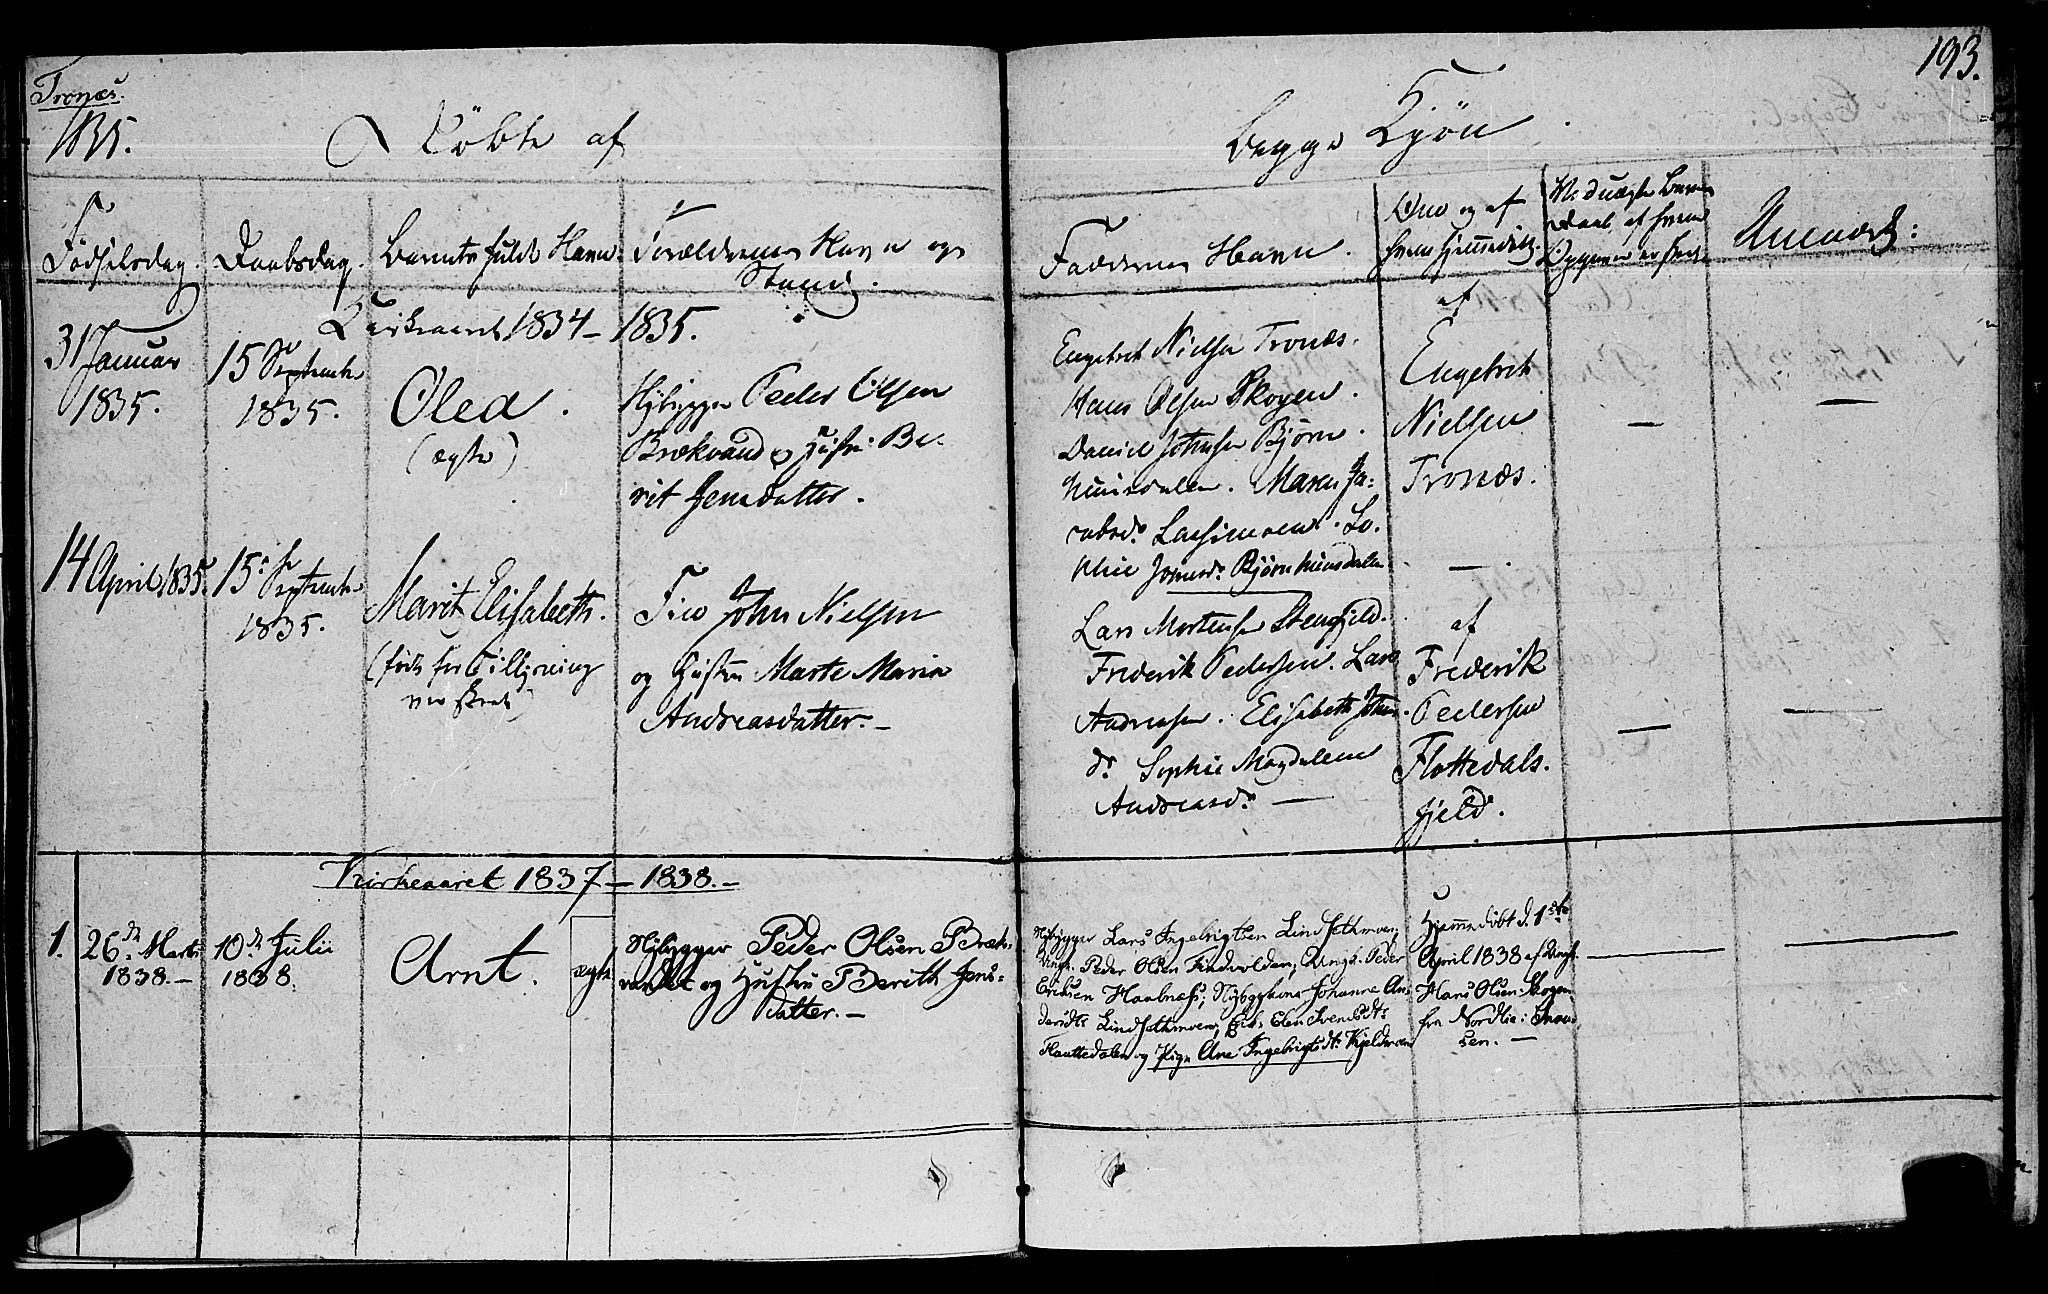 193.
Tronæs.
1835.
Döbte af
begge Kjön.
Födselsdag.
Daabsdag.
Barnets fulde Navn.
Forældrenes Navn og
Stand.
Faddernes Navn.
Om og af
hvem hjemmedöbt.
Anmærk:
Kirkeaaret 1834 – 1835.
31 Januar
1835.
15 Septembr
1835.
Oled.
(ægte)
Nybygger Peder Olsen
Brækvand og Hustru Be-
rit Jensdatter.
Engebret Nielsen Tronæs.
Hans Olsen Skogen.
Daniel Johnsen Björn-
Maren Ja-
cobsd.
Johnsd. Björn
af
Engebret
Nielsen
Tronæs.
—
—
14 April 1835.
15 Septembr
1835.
Marit Elisabeth.
(födt för
Fin John Nielsen
og Hustru Marte Maria
Andreasdatter. –
Lars Mortensen Stengfjeld.
Frederik Pedersen. Lars
Andreasen. Elisabeth John-
d. Sophie Magdalena
Andreasd. —
af
Frederik
Pedersen
Flottedals-
fjeld.
—
—
Kirkeaaret 1837 – 1838. –
1.
26de Marts
1838. –
10de Julii
1838.
Arnt.
ægte
Nybygger Peder Olsen Bræk-
vandet og Hustru Berith Jens-
datter. –
Nybygger Lars Ingebrigtsen Lindsethmoen;
Ungk. Peder Olsen Lindvolden, Ungk. Peder
Eriksen Haabnæs; Nybyggerkone Johanne An-
dersdtr Lindsethmoen, Pig. Elen Svendsdtr
Flaattedalen og Pige Ane Ingebrigtsdtr Kjeldmoen
Hjemmedöbt d. 1ste
April 1838 af Nybgr.
Hans Olsen Skogen
fra Nordlie: Snaa-
sen. –
—
—